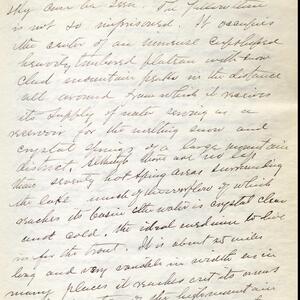 sky over the
is not so impressed. It occupies
the center of an immense
heavily timbered plateau with snow
clad mountain peaks in the distance
all around from which it receives
its supply of water serving as a
reservoir for the melting snow and
crystal springs of a large mountain
district. Although there are not less
than seventy hot spring areas surrounding
the lake much of the overflow of which
reaches its basin the water is crystal clear
and cold. the ideal medium to live
in for the trout. It is about 20 miles
long and very variable in width as in
many places it reaches out its arms
of the